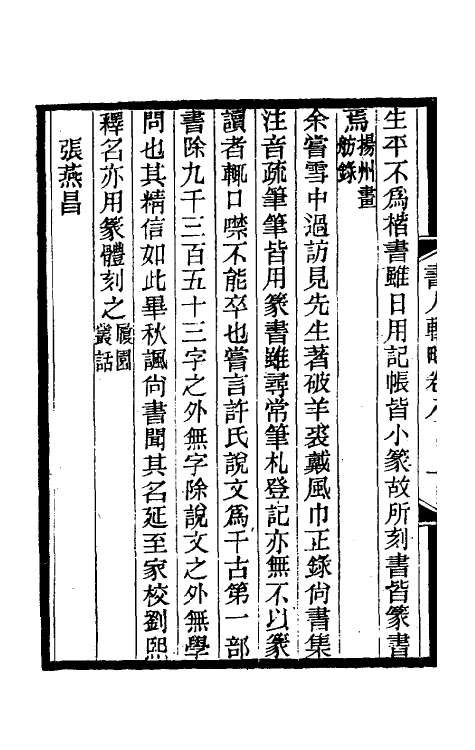 生平不爲楷書雖日用記帳皆小篆故所刻書皆篆書
焉揚州畫舫錄
余嘗雪中過訪見先生著破羊裘戴風巾正錄尙書集
注音疏筆筆皆用篆書雖尋常筆札登記亦無不以篆
讀者輒口噤不能卒也嘗言許氏說文爲千古第一部
書除九千三百五十三字之外無字除說文之外無學
問也其精信如此畢秋颿尙書聞其名延至家校劉熙
釋名亦用篆體刻之履園叢話
張燕昌